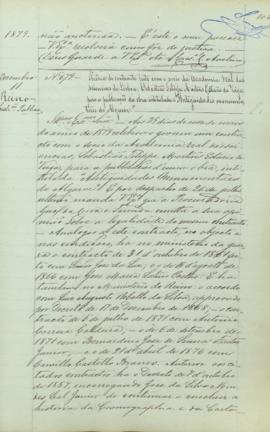 1879
não auctorisa. — É este o meu parecer —
V. Exª resolverá como for de justiça
Deus Guarde a V. Exª
Dezembro
11
Reino
Nº 679
Acerca do contracto feito com o socio da Academia Real das
Sciencias de Lisboa, Sebastião Philippe Martins Estacio da Veiga,
para a publicação da obra intitulada Antiguidades monumen-
taes do Algarve
de
do anno de 1878 celebrou o governo um contra-
cto com o socio da Academia real das scien-
cias, Sebastião Philippe Martins Estacio da
Veiga, para a publicação d'uma obra, inti-
tulada Antiguidades Monumentaes do
Algarve. E por despacho de de ju-
lho manda V. Exª que a Procuradoria
Geral da Coroa
sobre a legalidade do mesmo contracto
Analogos a este contracto, no objecto e
nas condições, ha no ministerio da guer-
ra o contracto de 31 d'outubro de 1861
com e o de 8 d'agosto de
1866 com José Maria Latino Coelho. E ha
tambem, no Ministerio do Reino, o accordo
com Luiz Augusto Rebello da Silva, approvado
por Decreto de 17 de Dezembro de 1868, o con-
tracto de 5 de julho de 1871 com Antonio
Correia Caldeira, o de 6 de setembro de
1871 com Bernardino José de Senna Freitas
Junior, e o de 21 de abril de 1876 com
Camillo Castello Branco. Anterior aos ci-
tados contractos ha o Decreto de 7 de outubro
de 1857, encarregando José da Silva Mendes
Leal Junior de continuar e concluir a
historia da Cosmographia e da Carto-